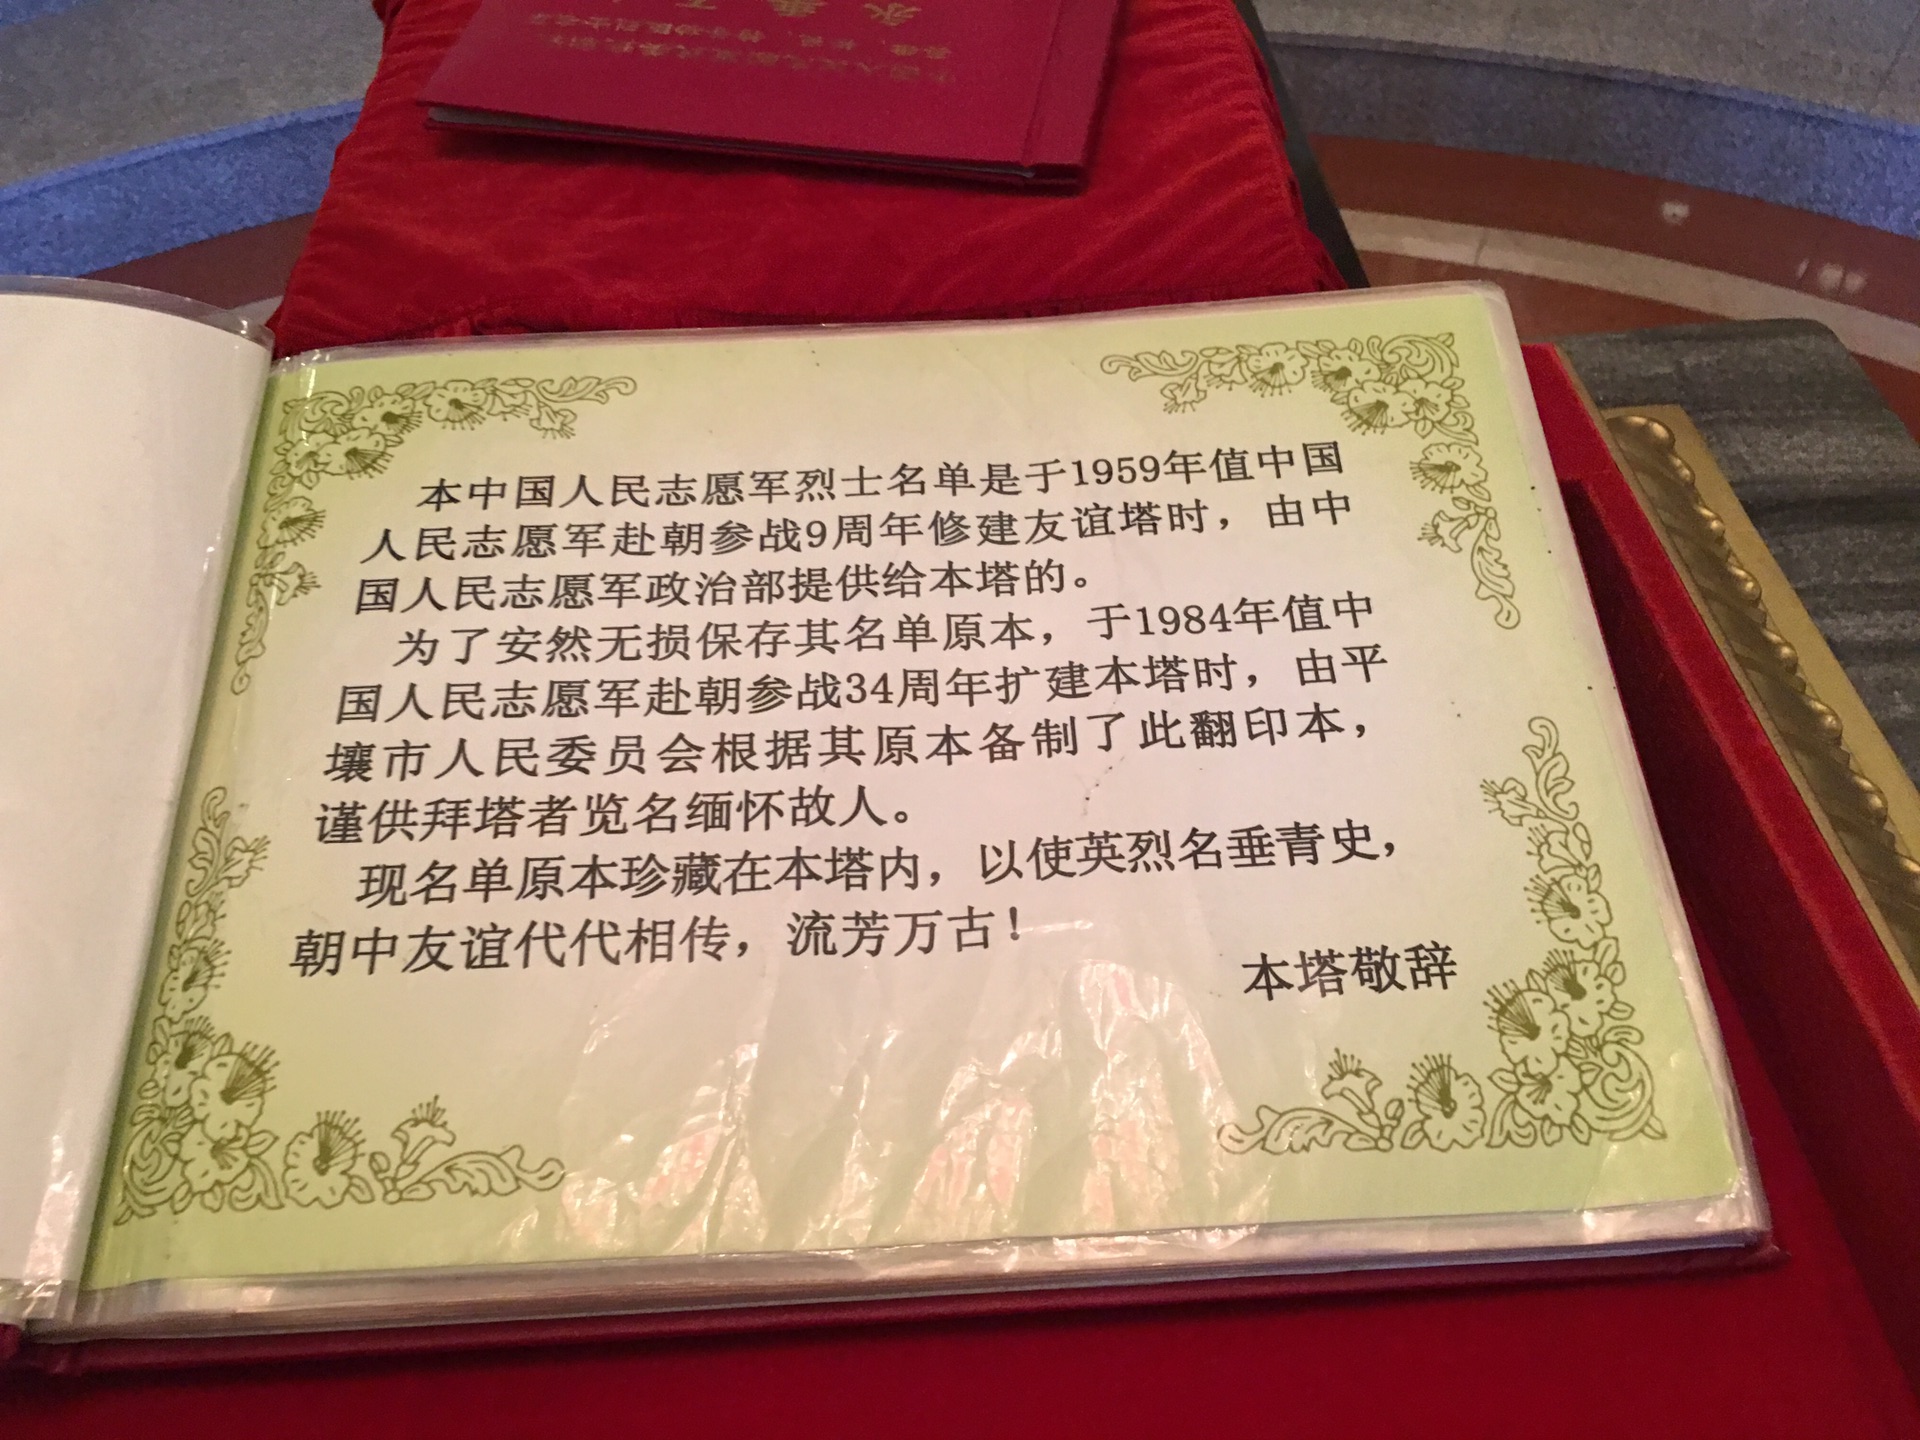 本中国人民志愿军烈士名单是于1959年值中国
人民志愿军赴朝参战9周年修建友谊塔时，由中
国人民志愿军政治部提供给本塔的。
为了安然无损保存其名单原本，于1984年值中
国人民志愿军赴朝参战34周年扩建本塔时，由平
壤市人民委员会根据其原本备制了此翻印本，
谨供拜塔者览名缅怀故人。
现名单原本珍藏在本塔内，以使英烈名垂青史，
朝中友谊代代相传，流芳万古！
本塔敬辞